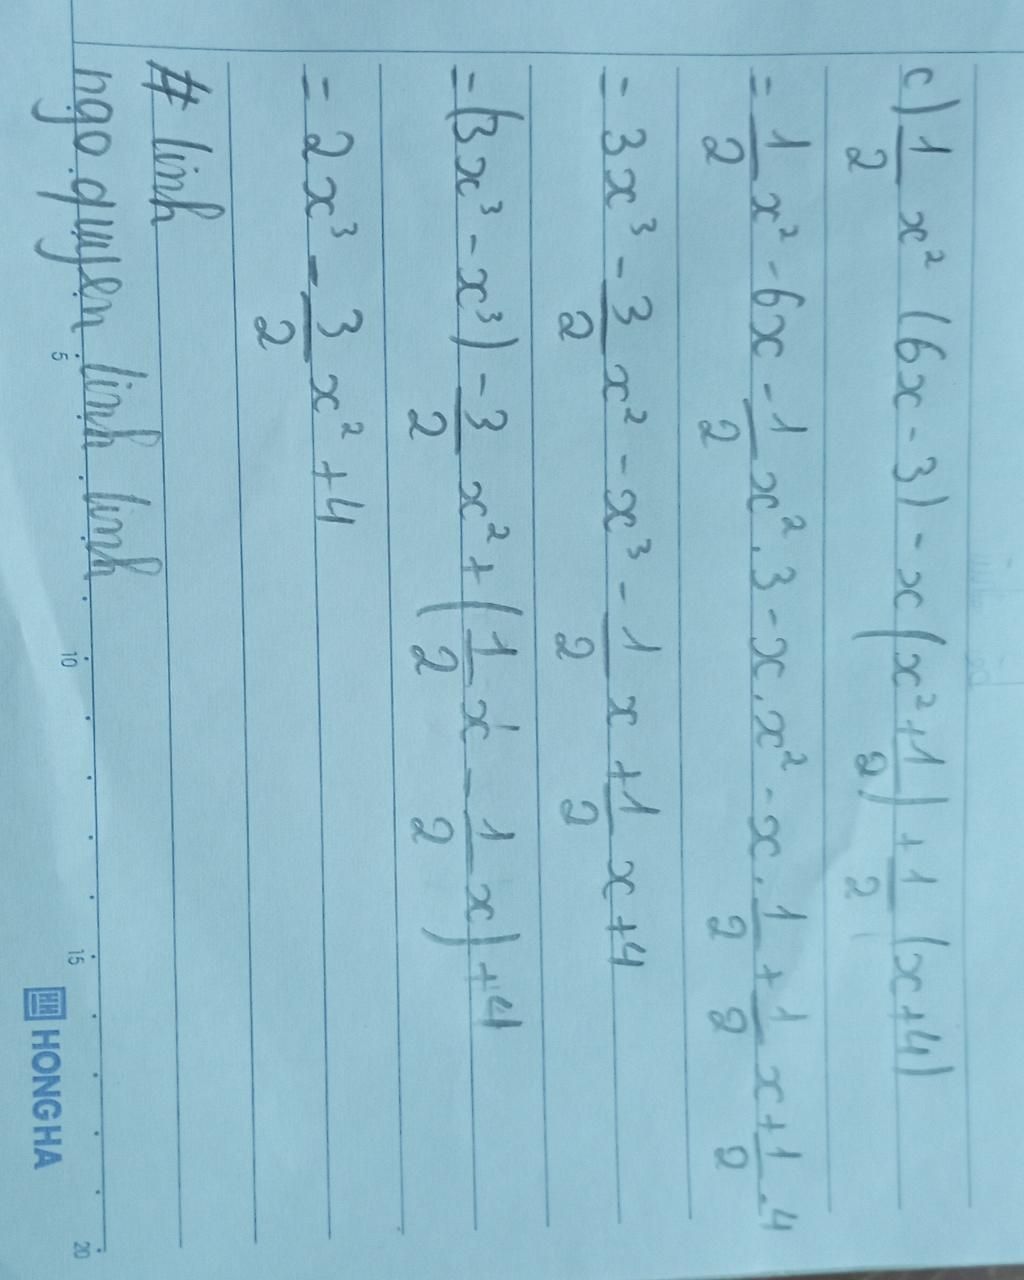 c) 1/2 x² (6x - 3) - x (x² + 1/2) + 1/2 (x + 4)
= 1/2 x² - 6x - 1/2 x² . 3 - x . x² - x . 1/2 + 1/2 x + 1/2 . 4
= 3x³ - 3/2 x² - x³ - 1/2 x + 1/2 x + 4
= (3x³ - x³) - 3/2 x² + (1/2 x - 1/2 x) + 4
= 2x³ - 3/2 x² + 4
# linh
ngo quyen linh linh
5 10 15 20
HH HONG HA